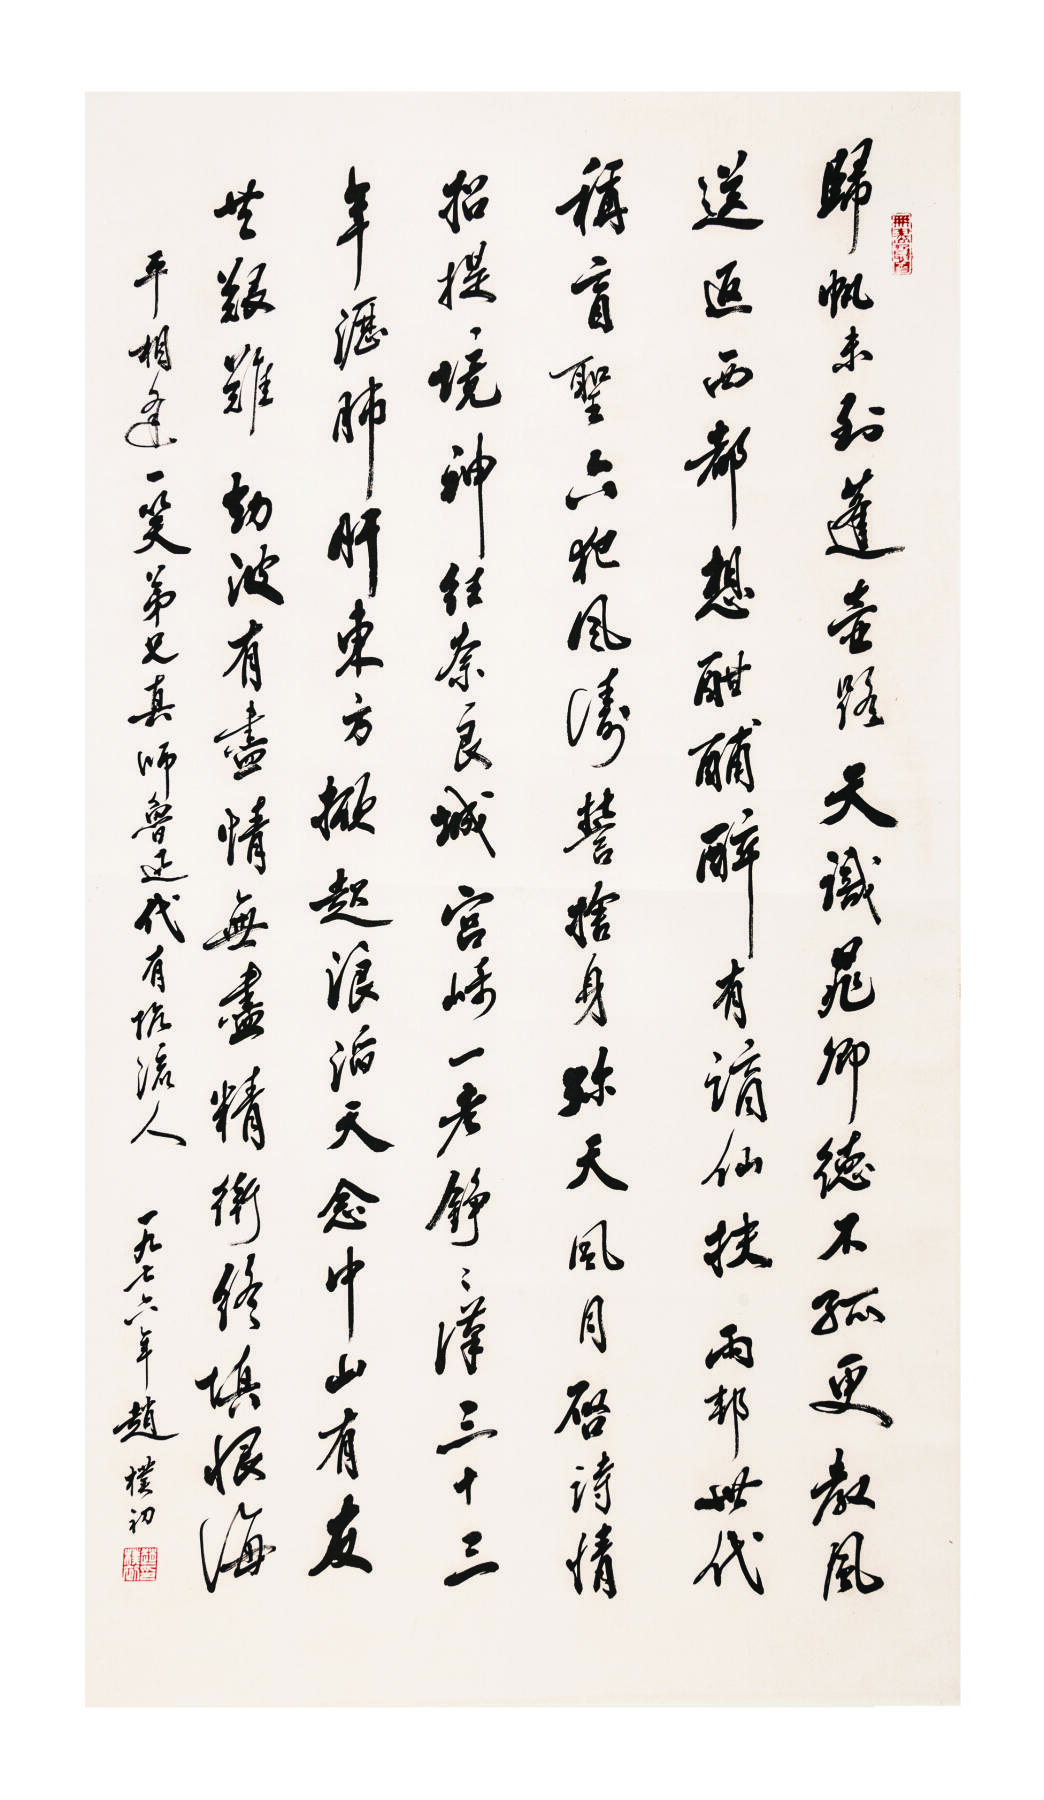 歸帆未到蓬壺路天識晁卿德不孤更教風
送返西都想酣酺醉有謫仙扶兩邦世代
稱盲聖六犯風濤誓捨身弥天風月啓詩情
招提、境神往奈良城宮崎一老錚〻漢三十三
年瀝肺肝東方掀起浪滔天念中山有友
共艱難劫波有盡情無盡精衛終填恨海
平相逢一笑弟兄真師魯迅代有人 一九七六年趙樸初